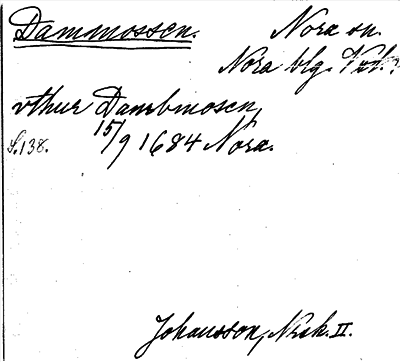 Dammossen.
Nora sn.
Nora blg. Vstm.
vthur Dambmosen,
15/9 1684 Nora.
S. 138.
Johansson, Nrsk. II.